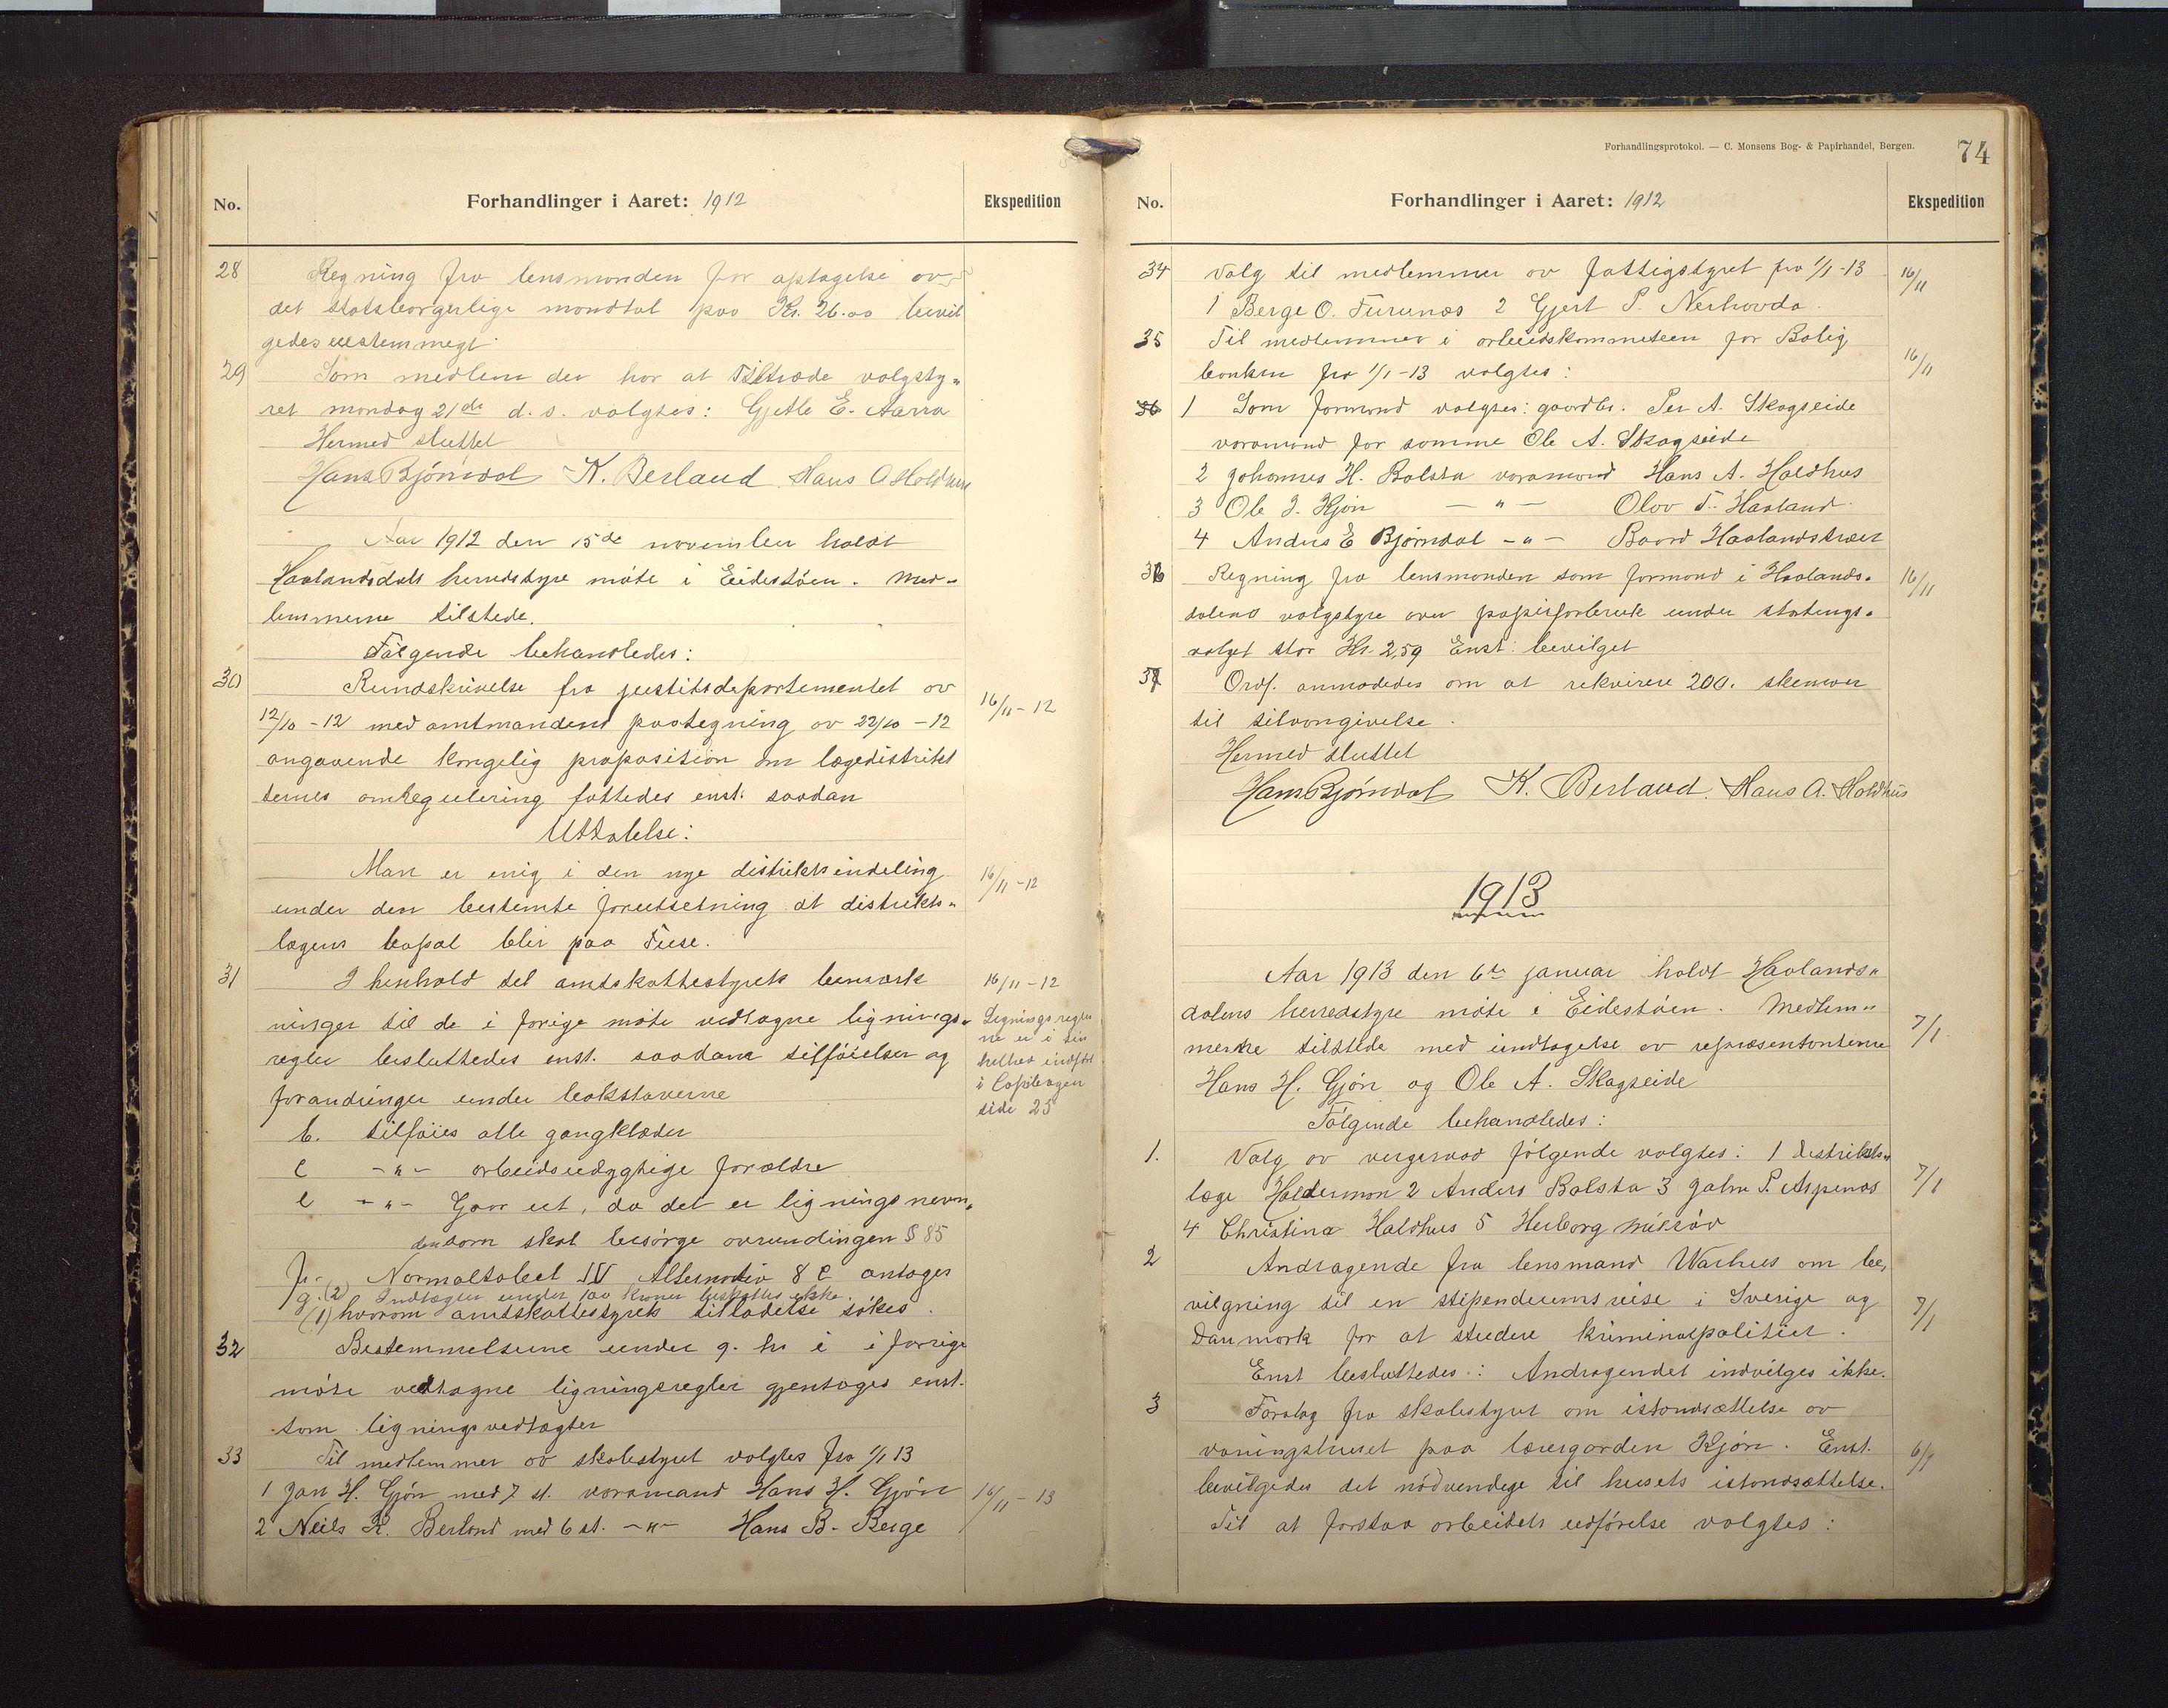 No. Forhandlinger i Aaret: 1912 Ekspedition
28 Regning fra lensmanden for optagelse av
det statsborgerlige mandtal paa Kr. 26.00 bevil
gedes enstemmegt.
29 Som medlem der har at tiltræde valgsty„
ret mandag 21de d.s. valgtes: Gjetle E. Aarra
Hermed sluttet
Hans Bjørndal K. Berland Hans A Holdhus
Aar 1912 den 15de november holdt
Haalandsdals herredstyre møte i Eidestøen. Med„
lemmerne tilstede.
Følgende behandledes:
30 Rundskrivelse fra justitsdepartementet av
12/10 - 12 med amtmandens paategning av 22/10 - 12 16/11 - 12
angaaende kongelig proposition om lægedistrikt
ternes omregulering fattedes enst. saadan
Uttalelse:
Man er enig i den nye distriktsindeling 16/11 - 12
under den bestemte forutsetning at distrikts„
lægens bopæl blir paa Fuse.
31 I henhold til amtskattestyrets bemærk 16/11 - 12
ninger til de i forige møte vedtagne lignings„
regler besluttedes enst. saadane tilføielser og
forandringer under bokstaverne
Ligningsregler
ne er i sin
helhet indført
i Copibogen
side 25
b. tilføies alle gangklæder
c -„- arbeidsudygtige forældre
e -„- Gaar ut, da det er ligningsnevn„
den som skal besørge avrundingen § 85
f. Normaltabel IV Alternativ 8 c antages
g. (2) Indtægter under 100 kroner beskattes ikke.
(1) hvorom amtskattestyrets tilladelse søkes.
32 Bestemmelserne under g. h. i i forrige
møte vedtagne ligningsregler gjentages enst.
som ligningsvedtægter
33 Til medlemmer av skolestyret valgtes fra 1/1 13
1 Jan H. Gjøn med 7 st. varamand Hans H. Gjøn 16/11 - 13
2 Neils K. Berland med 6 st. -„- Hans B. Berge
Forhandlingsprotokol. — C. Monsens Bog- & Papirhandel, Bergen. 74
No. Forhandlinger i Aaret: 1912 Ekspedition
34 Valg til medlemmer av fattigstyret fra 1/1-13 16/11
1 Berge O. Furunæs 2 Gjert P. Nerhovda
35 Til medlemmer i arbeidskommiteen for Bolig
banken fra 1/1-13 valgtes: 16/11
36 1 Som formand valgtes: gaardbr. Per A. Skogseide
varamand for samme Ole A. Skogseide
2 Johannes H. Bolsta varamand Hans A. Holdhus
3 Ole J. Kjøn -„- Olav T. Haaland
4 Anders E Bjørndal -„- Baard Haalandstræet
36 Regning fra lensmanden som formand i Haalands„ 16/11
dalens valgstyre over papirforbruk under stortings„
valget stor Kr. 2,59 Enst. bevilget
37 Ordf. anmodedes om at rekvirere 200. skemaer
til selvangivelse.
Hermed sluttet
Hans Bjørndal K. Berland. Hans A. Holdhus
1913
Aar 1913 den 6te januar holdt Haalands„
dalens herredstyre møte i Eidestøen. Medlem„ 7/1
merne tilstede med undtagelse av repræsentanterne
Hans H. Gjøn og Ole A. Skogseide
Følgende behandledes:
1. Valg av vergeraad følgende valgtes: 1 Distrikts„
læge Haldermon 2 Anders Bolsta 3 Jahn P. Aspenæs 7/1
4 Christina Holdhus 5 Herborg
2 Andragende fra lensmand Warhus om be„
vilgning til en stipendiumsreise i Sverige og 7/1
Danmark for at studere kriminalpolitiet.
Enst besluttedes: Andragendet indvilges ikke.
3 Forslag fra skolestyret om istandsættelse av
vaaningshuset paa lærergarden Kjøn. Enst. 6/9
bevilgedes det nødvendige til husets istandsættelse.
Til at forstaa arbeidets utførelse valgtes: